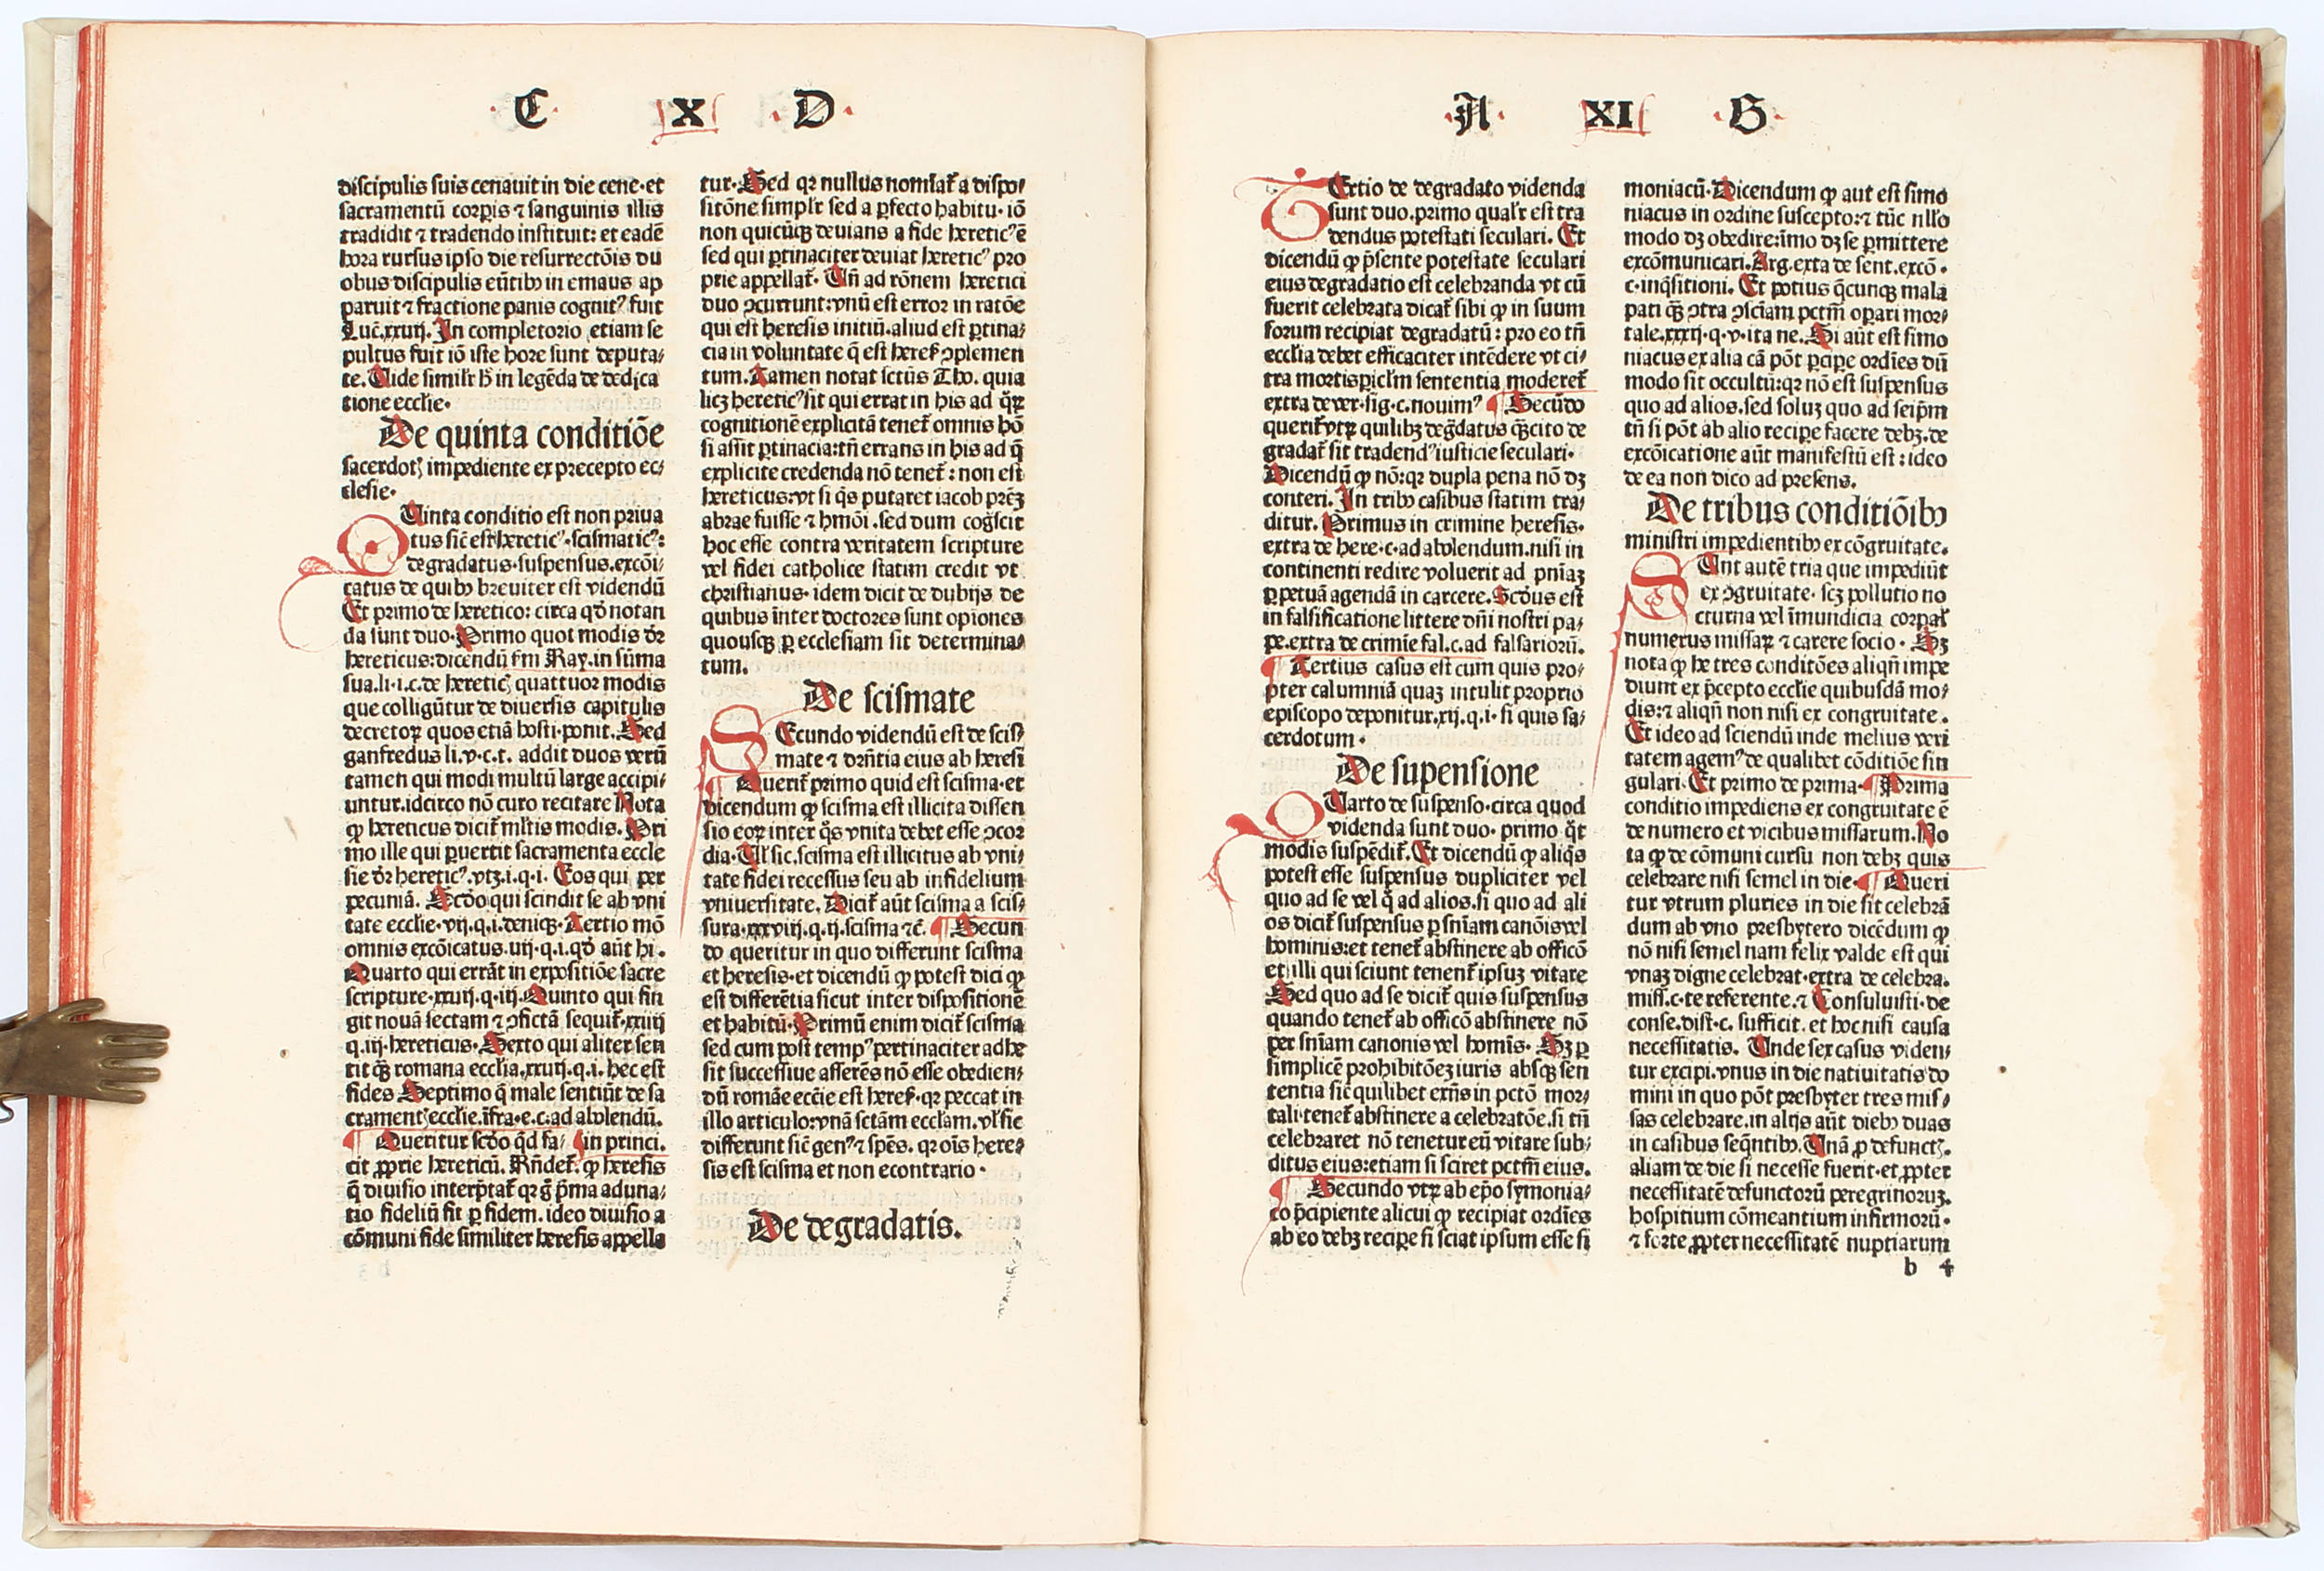 C X D
discipulis suis cenauit in die cene·et
sacramentū corpris ⁊ sanguinis illis
tradidit ⁊ tradendo instituit: et eadē
hora rursus ipso die resurrectōis du
obus discipulis eūtibꝫ in emaus ap
paruit ⁊ fractione panis cognitꝰ fuit
Luc̄.xxiiij. In completorio etiam se
pultus fuit iō iste hore sunt deputa⸗
te. Vide simil'r h̄ in legēda de dedica
tione eccl'ie·
De quinta conditiōe
sacerdotꝭ impediente ex precepto ec⸗
clesie·
QVinta conditio est non priua
tus sic̄ est hereticꝰ·scismaticꝰ:
degradatus·suspensus.excōi⸗
catus de quibꝫ breuiter est videndū
Et primo de heretico: circa qd̄ notan
da sunt duo·Primo quot modis dr̄
hereticus:dicendū fm Ray.in sūma
sua.li·i.c.de hereticꝭ quattuor modis
que colligūtur de diuersis capitulis
decretoꝝ quos etiā hosti·ponit. Sed
ganfredus li.v·c.t. addit duos verū
tamen qui modi multū large accipi⸗
untur.idcirco nō curo recitare Nota
ꝙ hereticus dicit̄ ml'tis modis. Pri
mo ille qui ꝑuertit sacramenta eccle
sie dr̄ hereticꝰ.vtꝫ.i.q·i. Eos qui per
pecuniā. Scd̄o qui scindit se ab vni
tate eccl'ie·vij.q.i.deniqꝫ·Tertio mō
omnis excōicatus.iiij·q.i.qd̄ aūt hi·
Quarto qui errāt in expositiōe sacre
scripture·xxiiij.q·iij.Quinto qui fin
git nouā sectam ⁊ ꝯfictā sequit̄·xxiiij
q.iij·hereticus·Sexto qui aliter sen
tit qꝫ romana eccl'ia.xxiiij.q.i.hec est
fides Septimo q̄ male sentiūt de sa
cramentꝭ eccl'ie.īfra·e.c:ad abolendū.
Queritur scd̄o qd̄ fa⸗ in princi.
cit ꝓprie hereticū. Rn̄det̄. ꝙ heresis
q̄ diuisio interp̄tat̄ qꝛ g̊ p̄ma aduna⸗
tio fideliū fit ꝑ fidem. ideo diuisio a
cōmuni fide similiter heresis appella
tur·Sed qꝛ nullus nomīat̄ a dispo⸗
sitōne simpl'r sed a ꝑfecto habitu·iō
non quicūqꝫ deuians a fide hereticꝰ ē
sed qui ꝑtinaciter deuiat hereticꝰ pro
prie appellat̄· Vn̄ ad rōnem heretici
duo ꝯcurrunt:vnū est error in ratōe
qui est heresis initiū.aliud est ꝑtina⸗
cia in voluntate q̄ est heres̄ ꝯplemen
tum.Tamen notat sctūs Tho. quia
licꝫ hereticꝰ sit qui errat in his ad q̄ꝝ
cognitionē explicitā tenet̄ omnis hō
si assit ꝑtinacia:tn̄ errans in his ad q̄
explicite credenda nō tenet̄: non est
hereticus:vt si q̊s putaret iacob prēꝫ
abrae fuisse ⁊ hmōi.sed dum cog̊scit
hoc esse contra veritatem scripture
vel fidei catholice statim credit vt
christianus·idem dicit de dubijs de
quibus inter doctores sunt opiones
quousqꝫ ꝑ ecclesiam sit determina⸗
tum.
De scismate
SEcundo videndū est de scis⸗
mate ⁊ drn̄tia eius ab heresi
Querit̄ primo quid est scisma·et
dicendum ꝙ scisma est illicita dissen
sio eoꝝ inter q̊s vnita debet esse ꝯcor
dia·Vl' sic.scisma est illicitus ab vni⸗
tate fidei recessus seu ab infidelium
vniuersitate. Dicit̄ aūt scisma a scis⸗
sura·xxviij.q.ij.scisma ⁊c̄. Secun
do queritur in quo differunt scisma
et heresis·et dicendū ꝙ potest dici ꝙ
est differētia sicut inter dispositionē
et habitū·Primū enim dicit̄ scisma
sed cum post tempꝰ pertinaciter adhe
sit successiue asserēs nō esse obedien⸗
dū romāe ecc̄ie est heres̄·qꝛ peccat in
illo articulo:vnā sctām eccl'am.vl' sic
differunt sic̄ genꝰ ⁊ spēs. qꝛ ois here⸗
sis est scisma et non econtrario·
De degradatis.
A XI B
TErtio de degradato videnda
sunt duo.primo qual'r est tra
dendus potestati seculari. Et
dicendū ꝙ p̄sente potestate seculari
eius degradatio est celebranda vt cū
fuerit celebrata dicat̄ sibi ꝙ in suum
forum recipiat degradatū: pro eo tn̄
eccl'ia debet efficaciter intēdere vt ci⸗
tra mortis ꝑicl'm sententia moderet̄
extra de ver·sig·c.nouimꝰ Secūdo
querit̄ vtꝝ quilibꝫ deg̊datus q̄ꝫcito de
gradat̄ sit tradendꝰ iusticie seculari·
Dicendū ꝙ nō:qꝛ dupla pena nō dꝫ
conteri. In tribꝫ casibus statim tra⸗
ditur. Primus in crimine heresis·
extra de here·c·ad abolendum.nisi in
continenti redire voluerit ad pniaꝫ
ꝑpetuā agendā in carcere.Scd̄us est
in falsificatione littere dn̄i nostri pa⸗
pe.extra de crimīe fal.c.ad falsarioru̅.
Tertius casus est cum quis pro⸗
pter calumniā quaꝫ intulit proprio
episcopo deponitur.xij.q.i·si quis sa⸗
cerdotum·
De supensione
QVarto de suspenso·circa quod
videnda sunt duo· primo q̊t
modis suspēdit̄.Et dicendū ꝙ aliq̊s
potest esse suspensus dupliciter vel
quo ad se vel q̊ ad alios.si quo ad ali
os dicit̄ suspensus ꝑ sn̄iam canōis vel
hominis:et tenet̄ abstinere ab officō
et illi qui sciunt tenent̄ ipsuꝫ vitare
Sed quo ad se dicit̄ quis suspensus
quando tenet̄ ab officō abstinere nō
per sn̄iam canonis vel homīs· Sꝫ ꝑ
simplicē prohibitōeꝫ iuris absqꝫ sen
tentia sic̄ quilibet exn̄s in pctō mor⸗
tali·tenet̄ abstinere a celebratōe.si tn̄
celebraret nō tenetur eū vitare sub⸗
ditus eius:etiam si sciret pctm̄ eius.
Secundo vtꝝ ab ep̄o symonia⸗
co p̄cipiente alicui ꝙ recipiat ordīes
ab eo debꝫ recipe si sciat ipsum esse si
moniacū·Dicendum ꝙ aut est simo
niacus in ordine suscepto:⁊ tūc nll'o
modo dꝫ obedire:īmo dꝫ se ꝑmittere
excōmunicari.Arg.exta de sent.excō·
c·inq̊sitioni. Et potius q̄cunqꝫ mala
pati q̄ꝫ ꝯtra ꝯsciam pctm̄ oꝑari mor⸗
tale.xxxij·q·v·ita ne. Si aūt est simo
niacus ex alia cā pōt ꝑcipe ordīes dū
modo sit occultū:qꝛ nō est suspensus
quo ad alios.sed soluꝫ quo ad seip̄m
tn̄ si pōt ab alio recipe facere debꝫ.de
excōicatione aūt manifestū est:ideo
de ea non dico ad presens.
De tribus conditiōibꝫ
ministri impedientibꝫ ex cōgruitate.
SVnt autē tria que impediūt
ex ꝯgruitate· scꝫ pollutio no
cturna vel īmundicia corꝑal'
numerus missaꝝ ⁊ carere socio· Sꝫ
nota ꝙ he tres conditōes aliqn̄ impe
diunt ex p̄cepto eccl'ie quibusdā mo⸗
dis:⁊ aliqn̄ non nisi ex congruitate.
Et ideo ad sciendū inde melius veri
tatem agemꝰ de qualibet cōditiōe sin
gulari. Et primo de prima· Prima
conditio impediens ex congruitate ē
de numero et vicibus missarum.No
ta ꝙ de cōmuni cursu non debꝫ quis
celebrare nisi semel in die· Queri
tur vtrum pluries in die sit celebrā
dum ab vno presbytero dicēdum ꝙ
nō nisi semel nam felix valde est qui
vnaꝫ digne celebrat·extra de celebra.
miss.c·te referente.⁊ Consuluisti·de
conse.dist·c. sufficit. et hoc nisi causa
necessitatis. Vnde sex casus viden⸗
tur excipi.vnus in die natiuitatis do
mini in quo pōt presbyter tres mis⸗
sas celebrare.in alijs aūt diebꝫ duas
in casibus seq̄ntibꝫ. Vnā ꝓ defunctꝭ.
aliam de die si necesse fuerit·et ꝓpter
necessitatē defunctorū peregrinoruꝫ.
hospitium cōmeantium infirmorū·
⁊ forte ꝓpter necessitatē nuptiarum
b 4